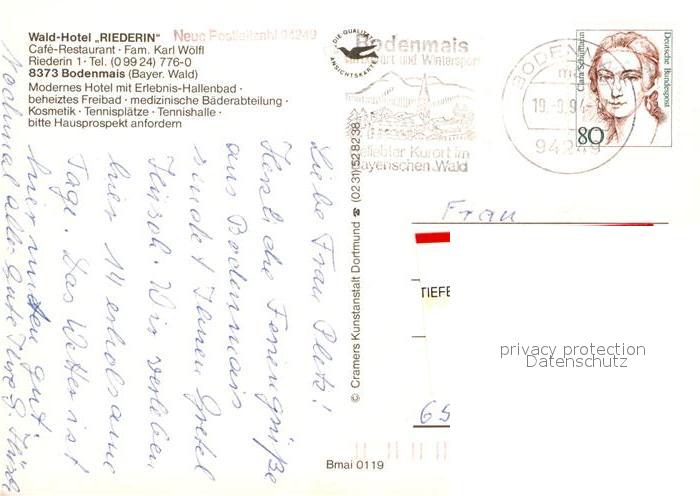 Wald-Hotel „RIEDERIN"
Neue Postleitzahl 94249
Café-Restaurant · Fam. Karl Wölfl
Riederin 1 · Tel. (0 99 24) 776-0
8373 Bodenmais (Bayer. Wald)
Modernes Hotel mit Erlebnis-Hallenbad ·
beheiztes Freibad · medizinische Bäderabteilung ·
Kosmetik · Tennisplätze · Tennishalle ·
bitte Hausprospekt anfordern
DIE QUALITÄTS
ANSICHTSKARTE
Bodenmais
Kurort im
Bayerischen Wald
19.-9.94
94249
Clara Schumann
Deutsche Bundespost
80
Liebe Frau Plotz!
Herzliche Feriengrüße
aus Bodenmais
sendet Ihnen Gretel
Hirsch. Wir verleben
hier 14 erholsame
Tage. Das Wetter ist
hier gut.
Nochmal alles Gute Ihre G.
© Cramers Kunstanstalt Dortmund ☎ (02 31) 52 82 38
Bmai 0119
Frau
TIEFE
65
privacy protection
Datenschutz